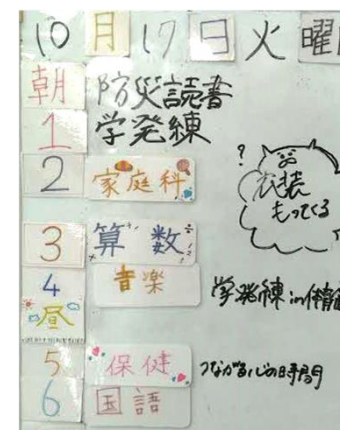 10月17日火曜
朝 防災読書
1 学発練
2 家庭科
衣装
もってくる
3 算数
4 音楽
学発練 in体育
昼
5 保健
6 国語